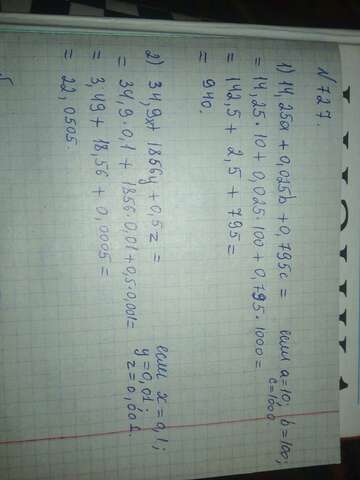 N 727.
1) 14,25a + 0,025b + 0,795c = если a=10; b=100;
= 14,25·10 + 0,025·100 + 0,795·1000 = c=1000
= 142,5 + 2,5 + 795 =
= 940.
2) 34,9x + 1856y + 0,5z = если x=0,1;
= 34,9·0,1 + 1856·0,01 + 0,5·0,001 = y=0,01;
= 3,49 + 18,56 + 0,0005 = z=0,001.
= 22,0505